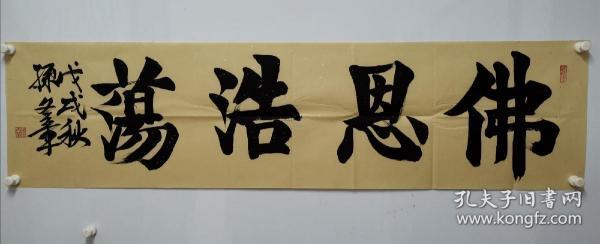 佛恩浩蕩
戊戌秋
振文章
孔夫子旧书网
www.kongfz.com